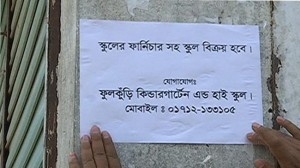 স্কুলের ফার্নিচার সহ স্কুল বিক্রয় হবে।
যোগাযোগঃ
ফুলকুঁড়ি কিন্ডারগার্টেন এন্ড হাই স্কুল।
মোবাইল ঃ ০১৭১২-১৩৩১০৫